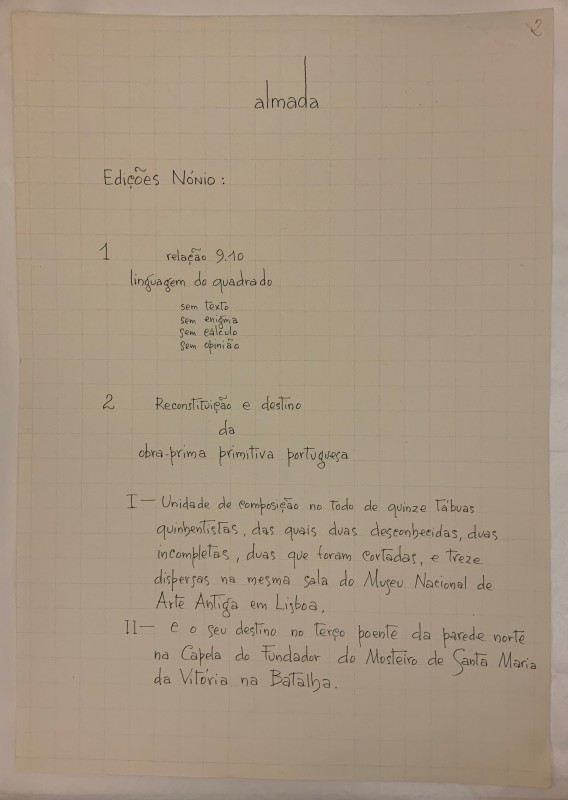 2
almada
Edições Nónio :
1 relação 9.10
linguagem do quadrado
sem texto
sem enigma
sem cálculo
sem opinião
2 Reconstituição e destino
da
obra-prima primitiva portuguesa
I — Unidade de composição no todo de quinze tábuas
quinhentistas, das quais duas desconhecidas, duas
incompletas, duas que foram cortadas, e treze
dispersas na mesma sala do Museu Nacional de
Arte Antiga em Lisboa,
II — e o seu destino no terço poente da parede norte
na Capela do Fundador do Mosteiro de Santa Maria
da Vitória na Batalha.